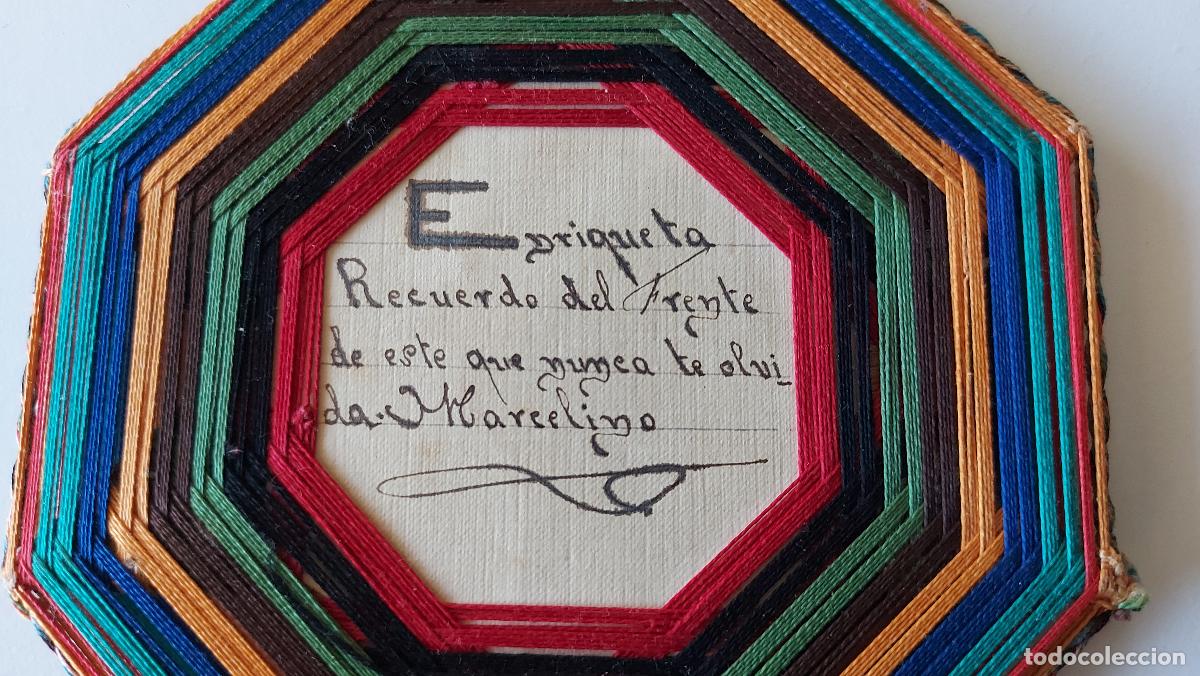 Enriqueta
Recuerdo del Frente
de este que nunca te olvi_
da. Marcelino
todocoleccion